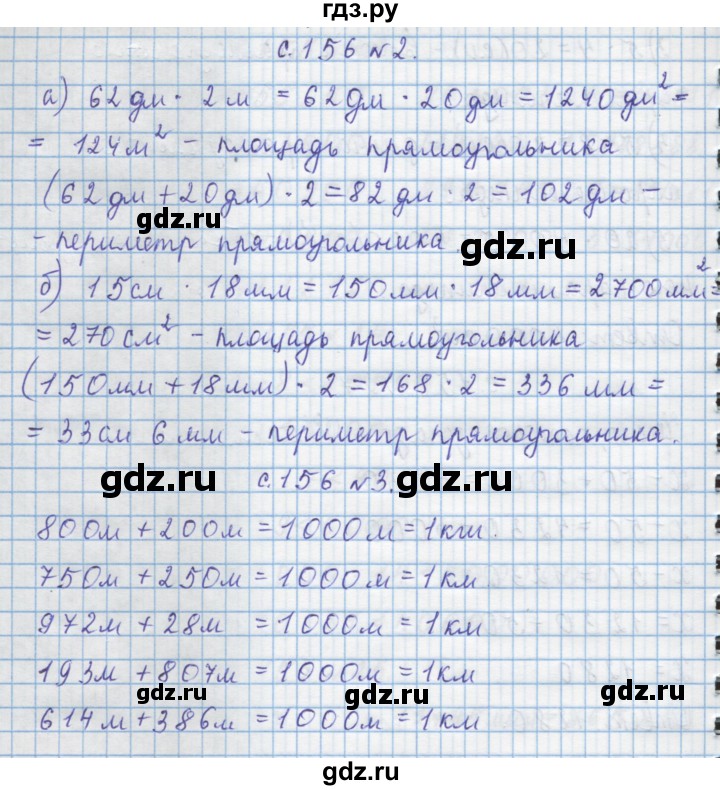 гдз.ру
с.156 №2.
а) 62 дм · 2 м = 62 дм · 20 дм = 1240 дм² =
= 124 м² - площадь прямоугольника
(62 дм + 20 дм) · 2 = 82 дм · 2 = 102 дм -
gdz.ru
- периметр прямоугольника
gdz.ru
б) 15 см · 18 мм = 150 мм · 18 мм = 2700 мм² =
= 270 см² - площадь прямоугольника
(150 мм + 18 мм) · 2 = 168 · 2 = 336 мм =
= 33 см 6 мм - периметр прямоугольника.
gdz.ru
с.156 №3.
gdz.ru
800 м + 200 м = 1000 м = 1 км.
750 м + 250 м = 1000 м = 1 км
972 м + 28 м = 1000 м = 1 км
193 м + 807 м = 1000 м = 1 км
gdz.ru
gdz.ru
gdz.ru
614 м + 386 м = 1000 м = 1 км
gdz.ru